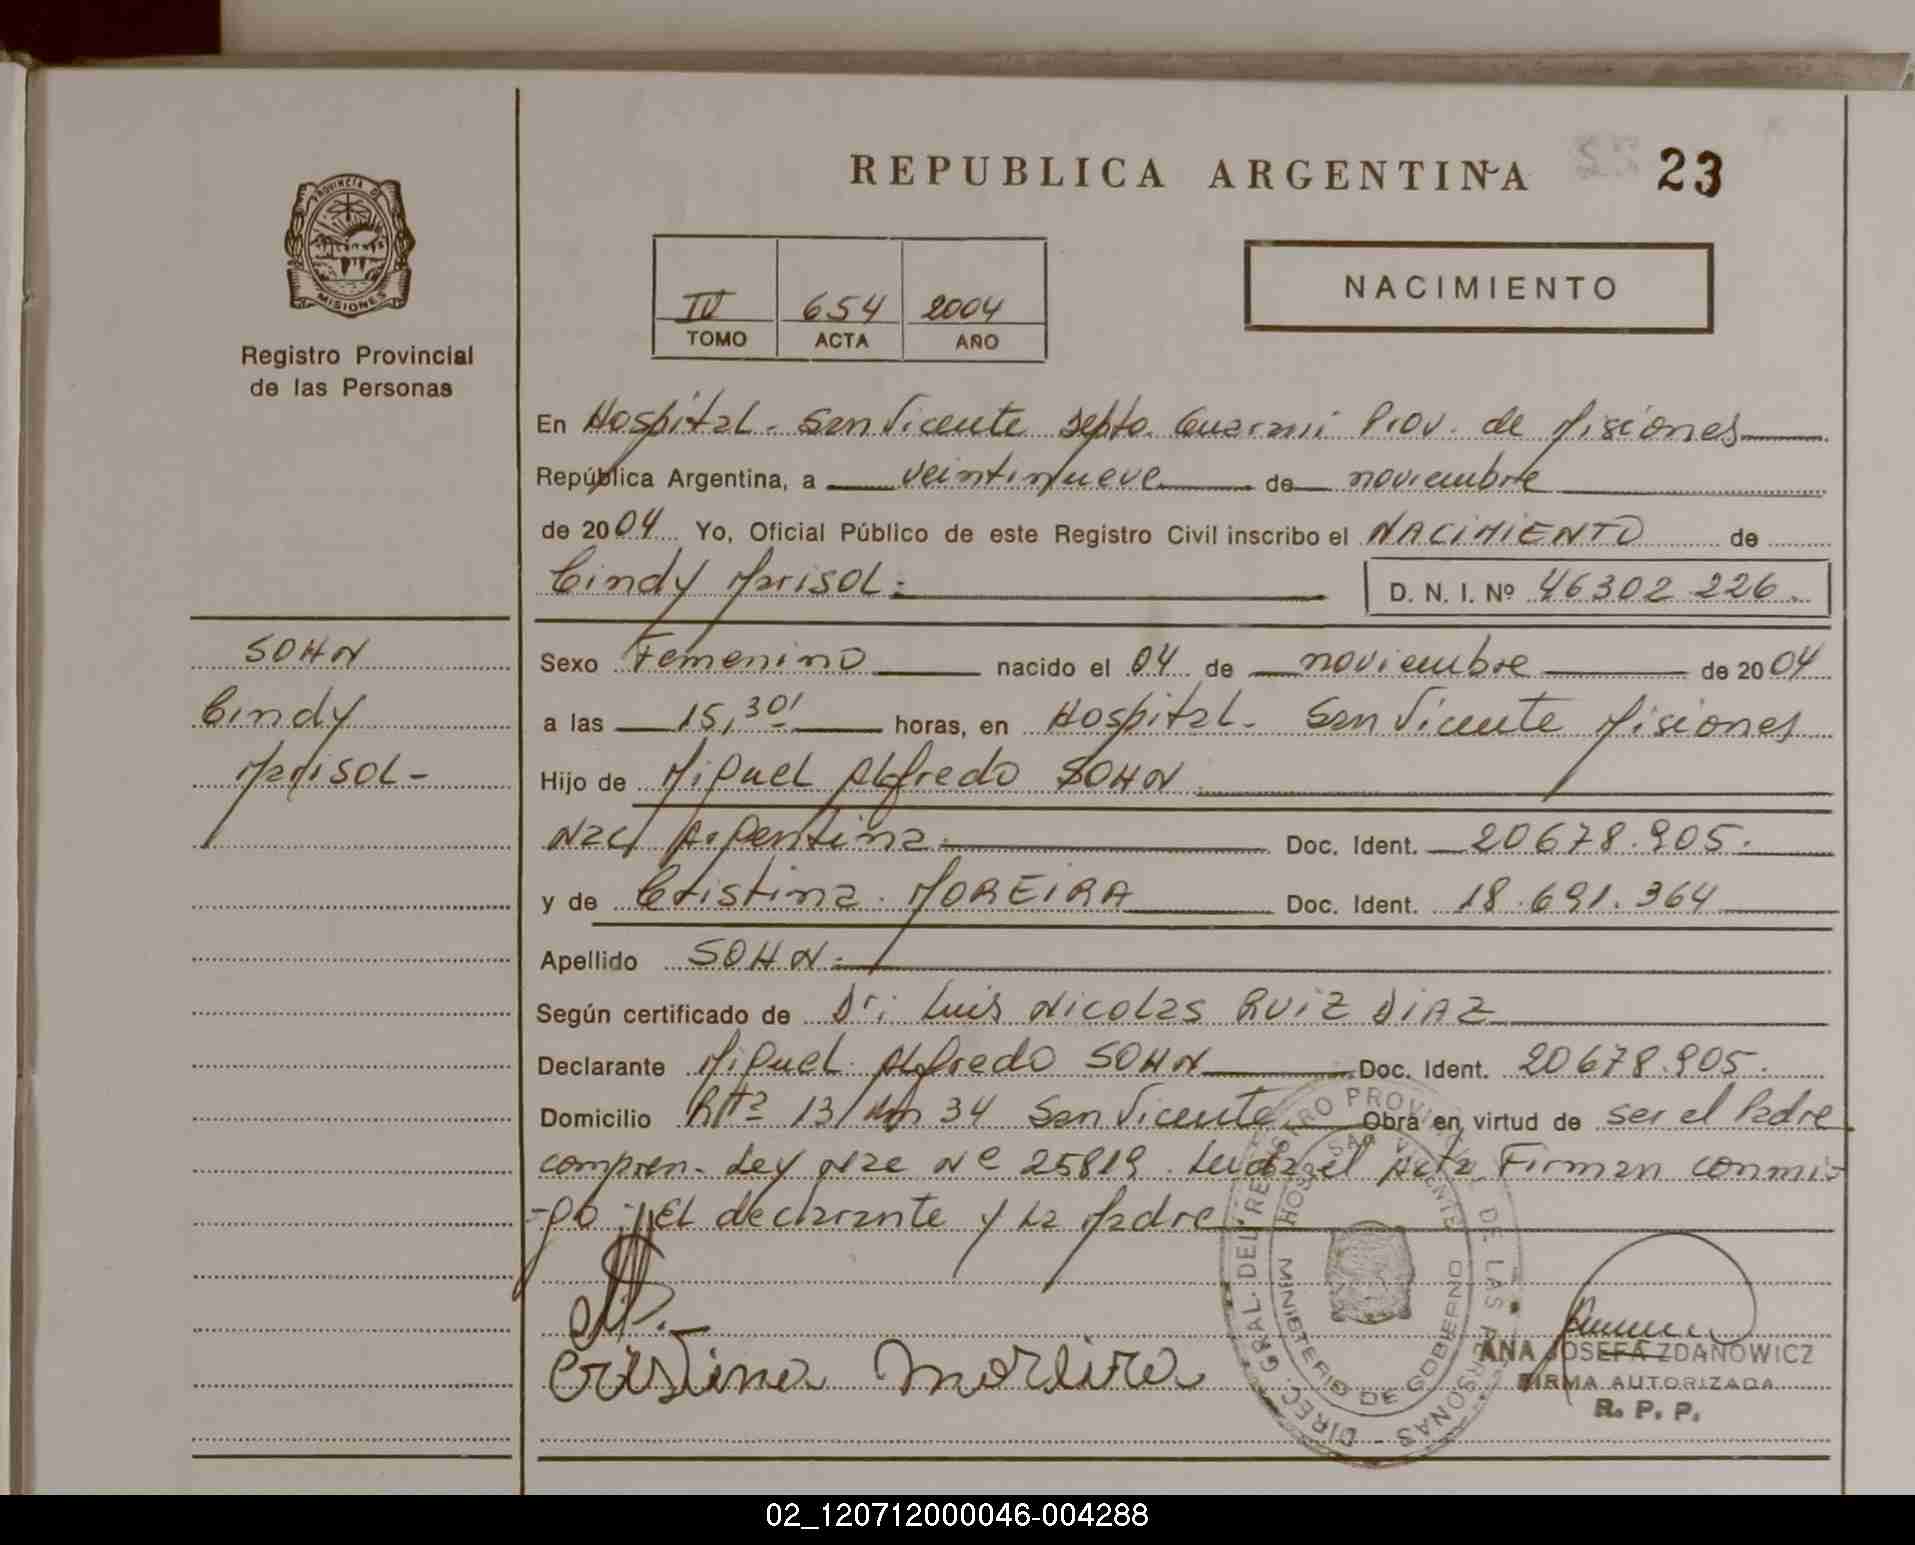 REPUBLICA ARGENTINA 23
PROVINCIA DE MISIONES
Registro Provincial
de las Personas
IV 654 2004
TOMO ACTA AÑO
NACIMIENTO
En Hospital - San Vicente Depto. Guarani Prov. de Misiones
República Argentina, a veintinueve de noviembre
de 2004 Yo, Oficial Público de este Registro Civil inscribo el NACIMIENTO de
Cindy Marisol.
D. N. I. Nº 46302 226.
SOHN
Cindy
Marisol-
Sexo Femenino nacido el 04 de noviembre de 2004
a las 15,30' horas, en Hospital - San Vicente Misiones
Hijo de Miguel Alfredo SOHN
Nac. Argentina. Doc. Ident. 20678.905.
y de Cristina. MOREIRA Doc. Ident. 18.691.364
Apellido SOHN.
Según certificado de Dr: Luis Nicolas RUIZ DIAZ
Declarante Miguel Alfredo SOHN Doc. Ident. 20678.905.
Domicilio Rta 13 Km 34 San Vicente Obra en virtud de ser el Padre
compren. Ley Nac Nº 25819. Leida el Acta Firman conmi-
-go : El declarante y La Madre
Cristina Moreira
DIREC. GRAL. DEL REGISTRO PROVINCIAL DE LAS PERSONAS -
HOSP. SAN VICENTE
MINISTERIO DE GOBIERNO
ANA JOSEFA ZDANOWICZ
FIRMA AUTORIZADA
R. P. P.
02_120712000046-004288